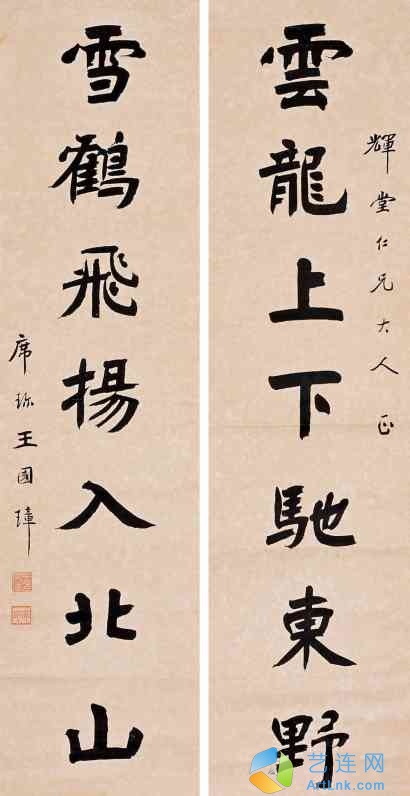 輝堂仁兄大人正
雲龍上下馳東野
雪鶴飛揚入北山
席珍王國璋
艺连网
ArtLnk.com